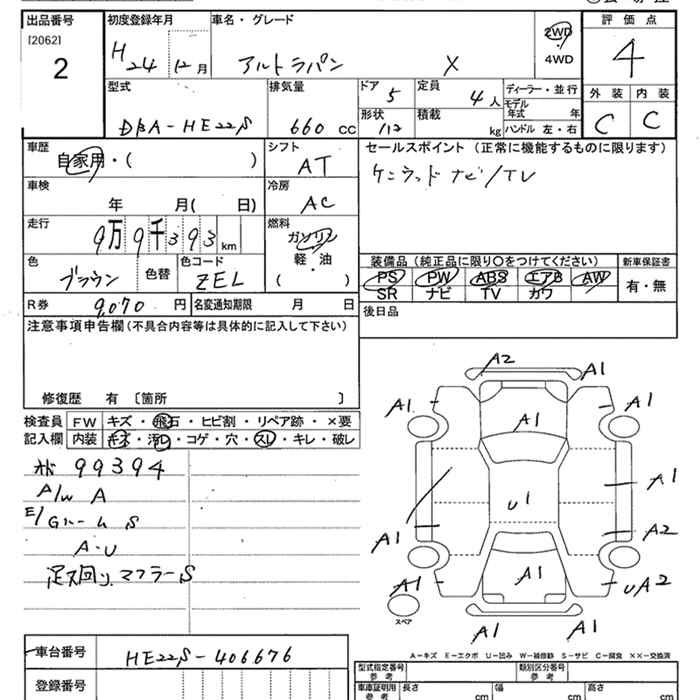 出品番号 初度登録年月 車名・グレード 評価点
[2062]
2 H24 12月 アルトラパン X 2WD 4WD 4
型式 排気量 ドア 5 定員 4人 ディーラー・並行 外装 内装
モデル年式 年
DBA-HE22S 660cc 形状 積載 kg ハンドル 左・右 C C
車歴 シフト セールスポイント (正常に機能するものに限ります)
自家用・( ) AT ナビ/TV
車検 冷房
年 月( 日) AC
走行 燃料
9万9千393km ガソリン
軽・油
( )
色 色コード 装備品 (純正品に限り○をつけてください) 新車保証書
ブラウン 色替 ZEL PS PW ABS エアB AW 有・無
SR ナビ TV カワ
R券 9,070円 名変通知期限 月 日 後日品
注意事項申告欄(不具合内容等は具体的に記入して下さい)
修復歴 有 〔箇所 〕
検査員 FW キズ・飛石・ヒビ割・リペア跡・×要
記入欄 内装 キズ・汚レ・コゲ・穴・スレ・キレ・破レ
99394
A/W A
E/Gルーム S
A・U
足廻り、マフラーS
A2 A1
A1 A1 A1
U1 A1
A1 A2
A1 A1 UA2
スペア
A1 A1
A-キズ E-エクボ U-凹み W-補修跡 S-サビ C-腐食 XX-交換済
車台番号 HE22S-406676 型式指定番号 参考 類別区分番号 参考
登録番号 車庫証明用 参考 長さ cm 幅 cm 高さ cm